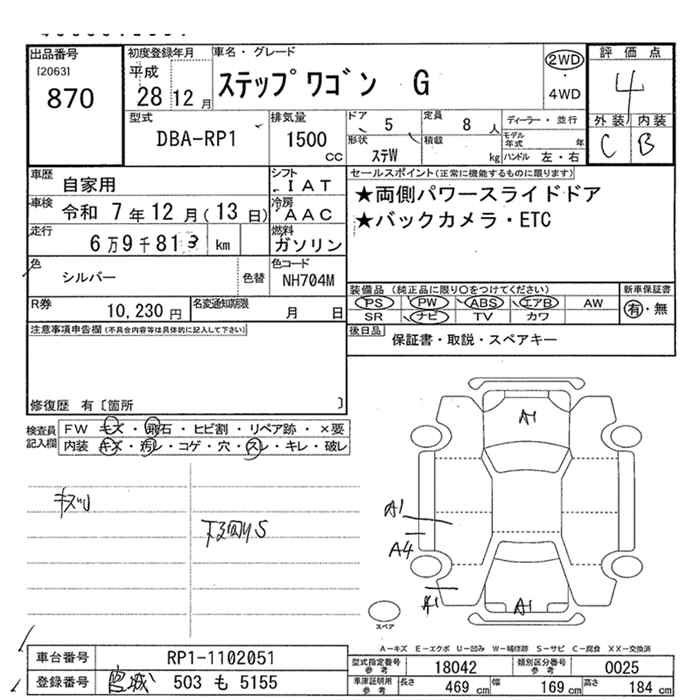 出品番号
[2063]
870
初度登録年月
平成
28 12 月
車名・グレード
ステップワゴン G
2WD
・
4WD
評価点
4
外装 内装
C B
型式
DBA-RP1
排気量
1500
cc
ドア
5
定員
8 人
ディーラー・並行
形状
ステW
積載
kg
モデル年式
年
ハンドル 左・右
車歴
自家用
シフト
IAT
車検
令和 7年12月(13日)
冷房
AAC
走行
6万9千813 km
燃料
ガソリン
色
シルバー
色替
色コード
NH704M
R券
10,230 円
名変通知期限
月 日
セールスポイント(正常に機能するものに限ります)
★両側パワースライドドア
★バックカメラ・ETC
装備品(純正品に限り○をつけてください)
新車保証書
PS PW ABS エアB AW
SR ナビ TV カワ
有・無
後日品
保証書・取説・スペアキー
注意事項申告欄(不具合内容等は具体的に記入して下さい)
修復歴 有〔箇所 〕
検査員記入欄
FW キズ・飛石・ヒビ割・リペア跡・×要
内装 キズ・汚レ・コゲ・穴・スレ・キレ・破レ
キズソ
下廻りS
A1
A1
A4
A1
A1
スペア
A-キズ E-エクボ U-凹み W-補修跡 S-サビ C-腐食 XX-交換済
車台番号
RP1-1102051
登録番号
宮城 503 も 5155
型式指定番号
参考
18042
類別区分番号
参考
0025
車庫証明用
参考
長さ
469 cm
幅
169 cm
高さ
184 cm